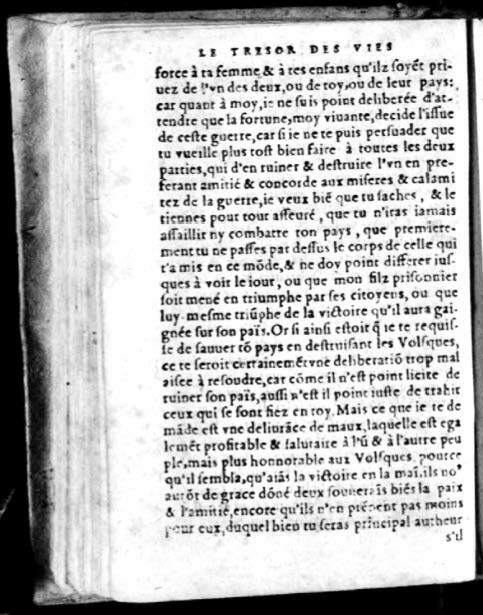 LE TRESOR DES VIES
force à ta femme & à tes enfans qu'ilz soyẽt pri-
uez de l'vn des deux, ou de toy, ou de leur pays:
car quant à moy, ie ne suis point deliberée d'at-
tendre que la fortune, moy viuante, decide l'issue
de ceste guerre, car si ie ne te puis persuader que
tu vueille plus tost bien faire à toutes les deux
parties, qui d'en ruiner & destruire l'vn en pre-
ferant amitié & concorde aux miseres & calami
tez de la guerre, ie veux biẽ que tu saches, & le
tiennes pour tout asseuré, que tu n'iras iamais
assaillir ny combatre ton pays, que premiere-
ment tu ne passes par dessus le corps de celle qui
t'a mis en ce mõde, & ne doy point differer ius-
ques à voir le iour, ou que mon filz prisonnier
soit mené en triumphe par ses citoyens, ou que
luy-mesme triũphe de la victoire qu'il aura gai-
gnée sur son païs. Or si ainsi estoit q̃ ie te requis-
se de sauuer tõ pays en destruisant les Volsques,
ce te seroit certainemẽt vne deliberatiõ trop mal
aisee à resoudre, car cõme il n'est point licite de
ruiner son païs, aussi n'est il point iuste de trahir
ceux qui se sont fiez en toy. Mais ce que ie te de
mãde est vne deliurãce de maux, laquelle est ega
lemẽt profitable & salutaire à l'ũ & à l'autre peu
ple, mais plus honnorable aux Volsques pource
qu'il sembla, qu'aiãs la victoire en la maĩ, ils no'
aurõt de grace dõné deux souuerais biẽs la paix
& l'amitié, encore qu'ils n'en prẽnent pas moins
pour eux, duquel bien tu seras principal autheur
s'il